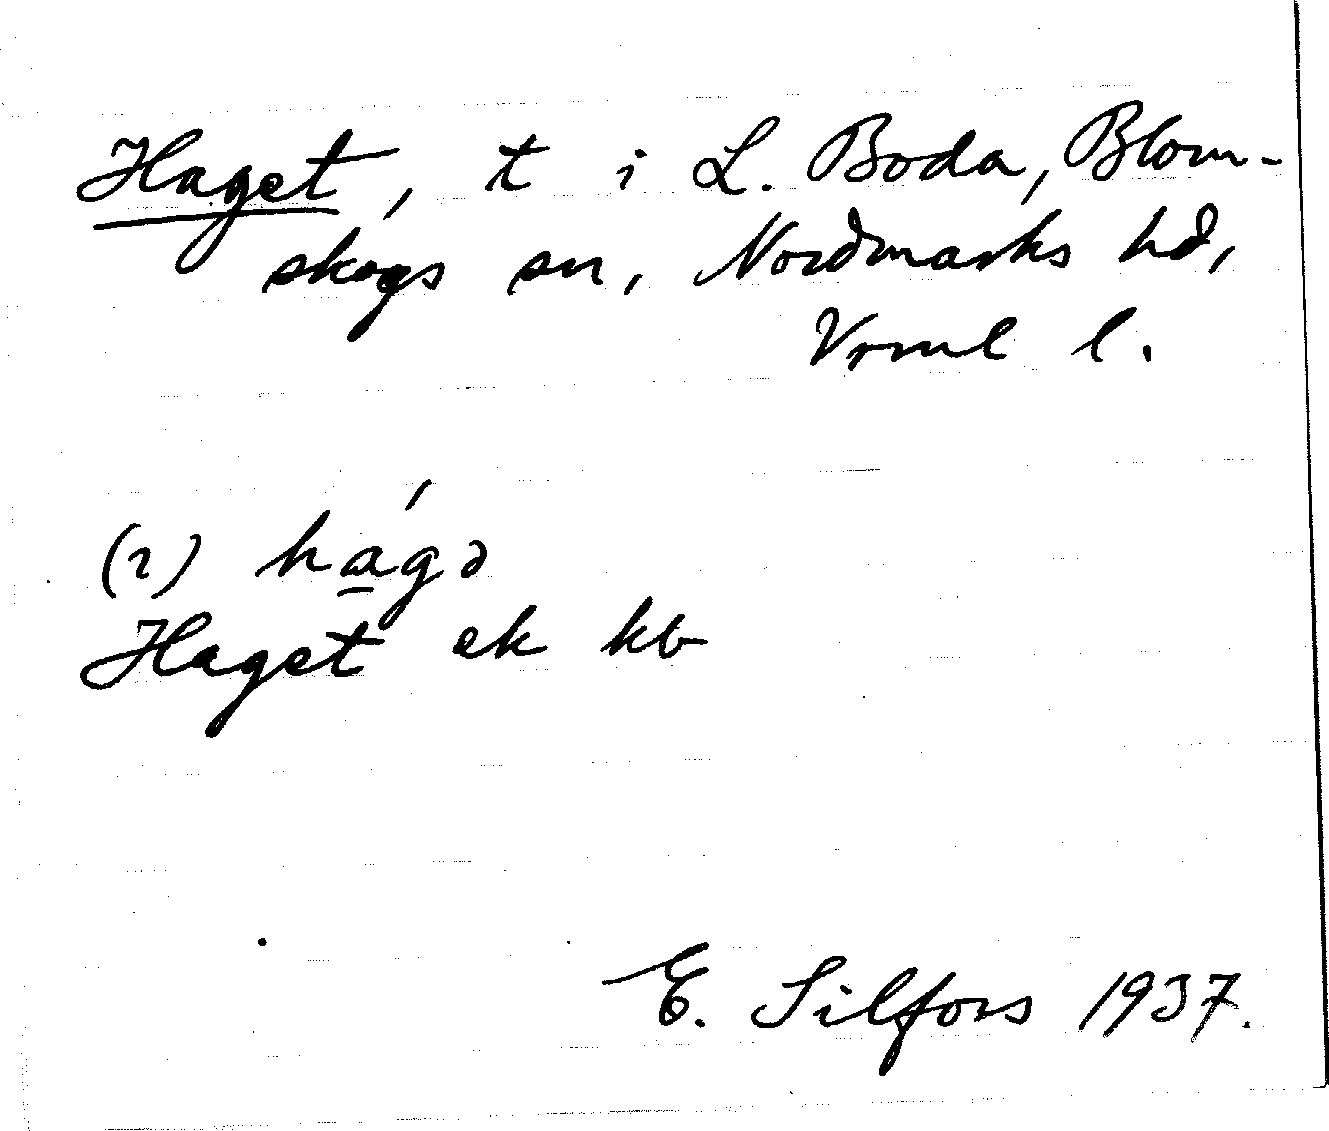 Haget, t i L. Boda, Blom-
skogs sn, Nordmarks hd,
Vrml l.
(2) ha̲´gə
Haget ek kb
E. Silfors 1937.